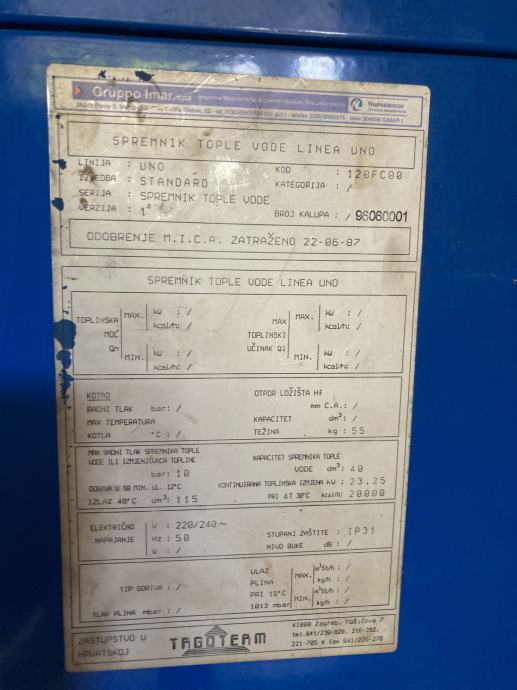 Gruppo Imar spa
Nuovalencor
SPREMNIK TOPLE VODE LINEA UNO
LINIJA : UNO KOD : 120FC00
IZVEDBA : STANDARD KATEGORIJA : /
SERIJA : SPREMNIK TOPLE VODE
VERZIJA : 1ª BROJ KALUPA : / 96080001
ODOBRENJE M.I.C.A. ZATRAŽENO 22-06-87
SPREMNIK TOPLE VODE LINEA UNO
TOPLINSKA MOĆ Qn MAX. kW : / kcal/h: /
MIN. kW : / kcal/h: /
MAX TOPLINSKI UČINAK Q1 MAX. kW : / kcal/h: /
MIN. kW : / kcal/h: /
KOTAO OTPOR LOŽIŠTA Hf
RADNI TLAK bar: / mm C.A.: /
MAX TEMPERATURA KAPACITET dm³: /
KOTLA °C : / TEŽINA kg : 55
MAX RADNI TLAK SPREMNIKA TOPLE KAPACITET SPREMNIKA TOPLE
VODE ILI IZMJENJIVAČA TOPLINE VODE dm³: 40
bar: 10
DOBAVA U 10 MIN. UL. 12°C KONTINUIRANA TOPLINSKA IZMJENA kW : 23,25
IZLAZ 40°C dm³: 115 PRI ΔT 30°C kcal/h: 20000
ELEKTRIČNO U : 220/240~
NAPAJANJE Hz : 50 STUPANJ ZAŠTITE : IP31
W : / NIVO BUKE dB : /
TIP GORIVA : /
TLAK PLINA mbar: /
ULAZ PLINA PRI 15°C 1013 mbar
MAX. m³St/h : / kg/h : /
MIN. m³St/h : / kg/h : /
ZASTUPSTVO U
HRVATSKOJ
TAGOTERM
41000 Zagreb,